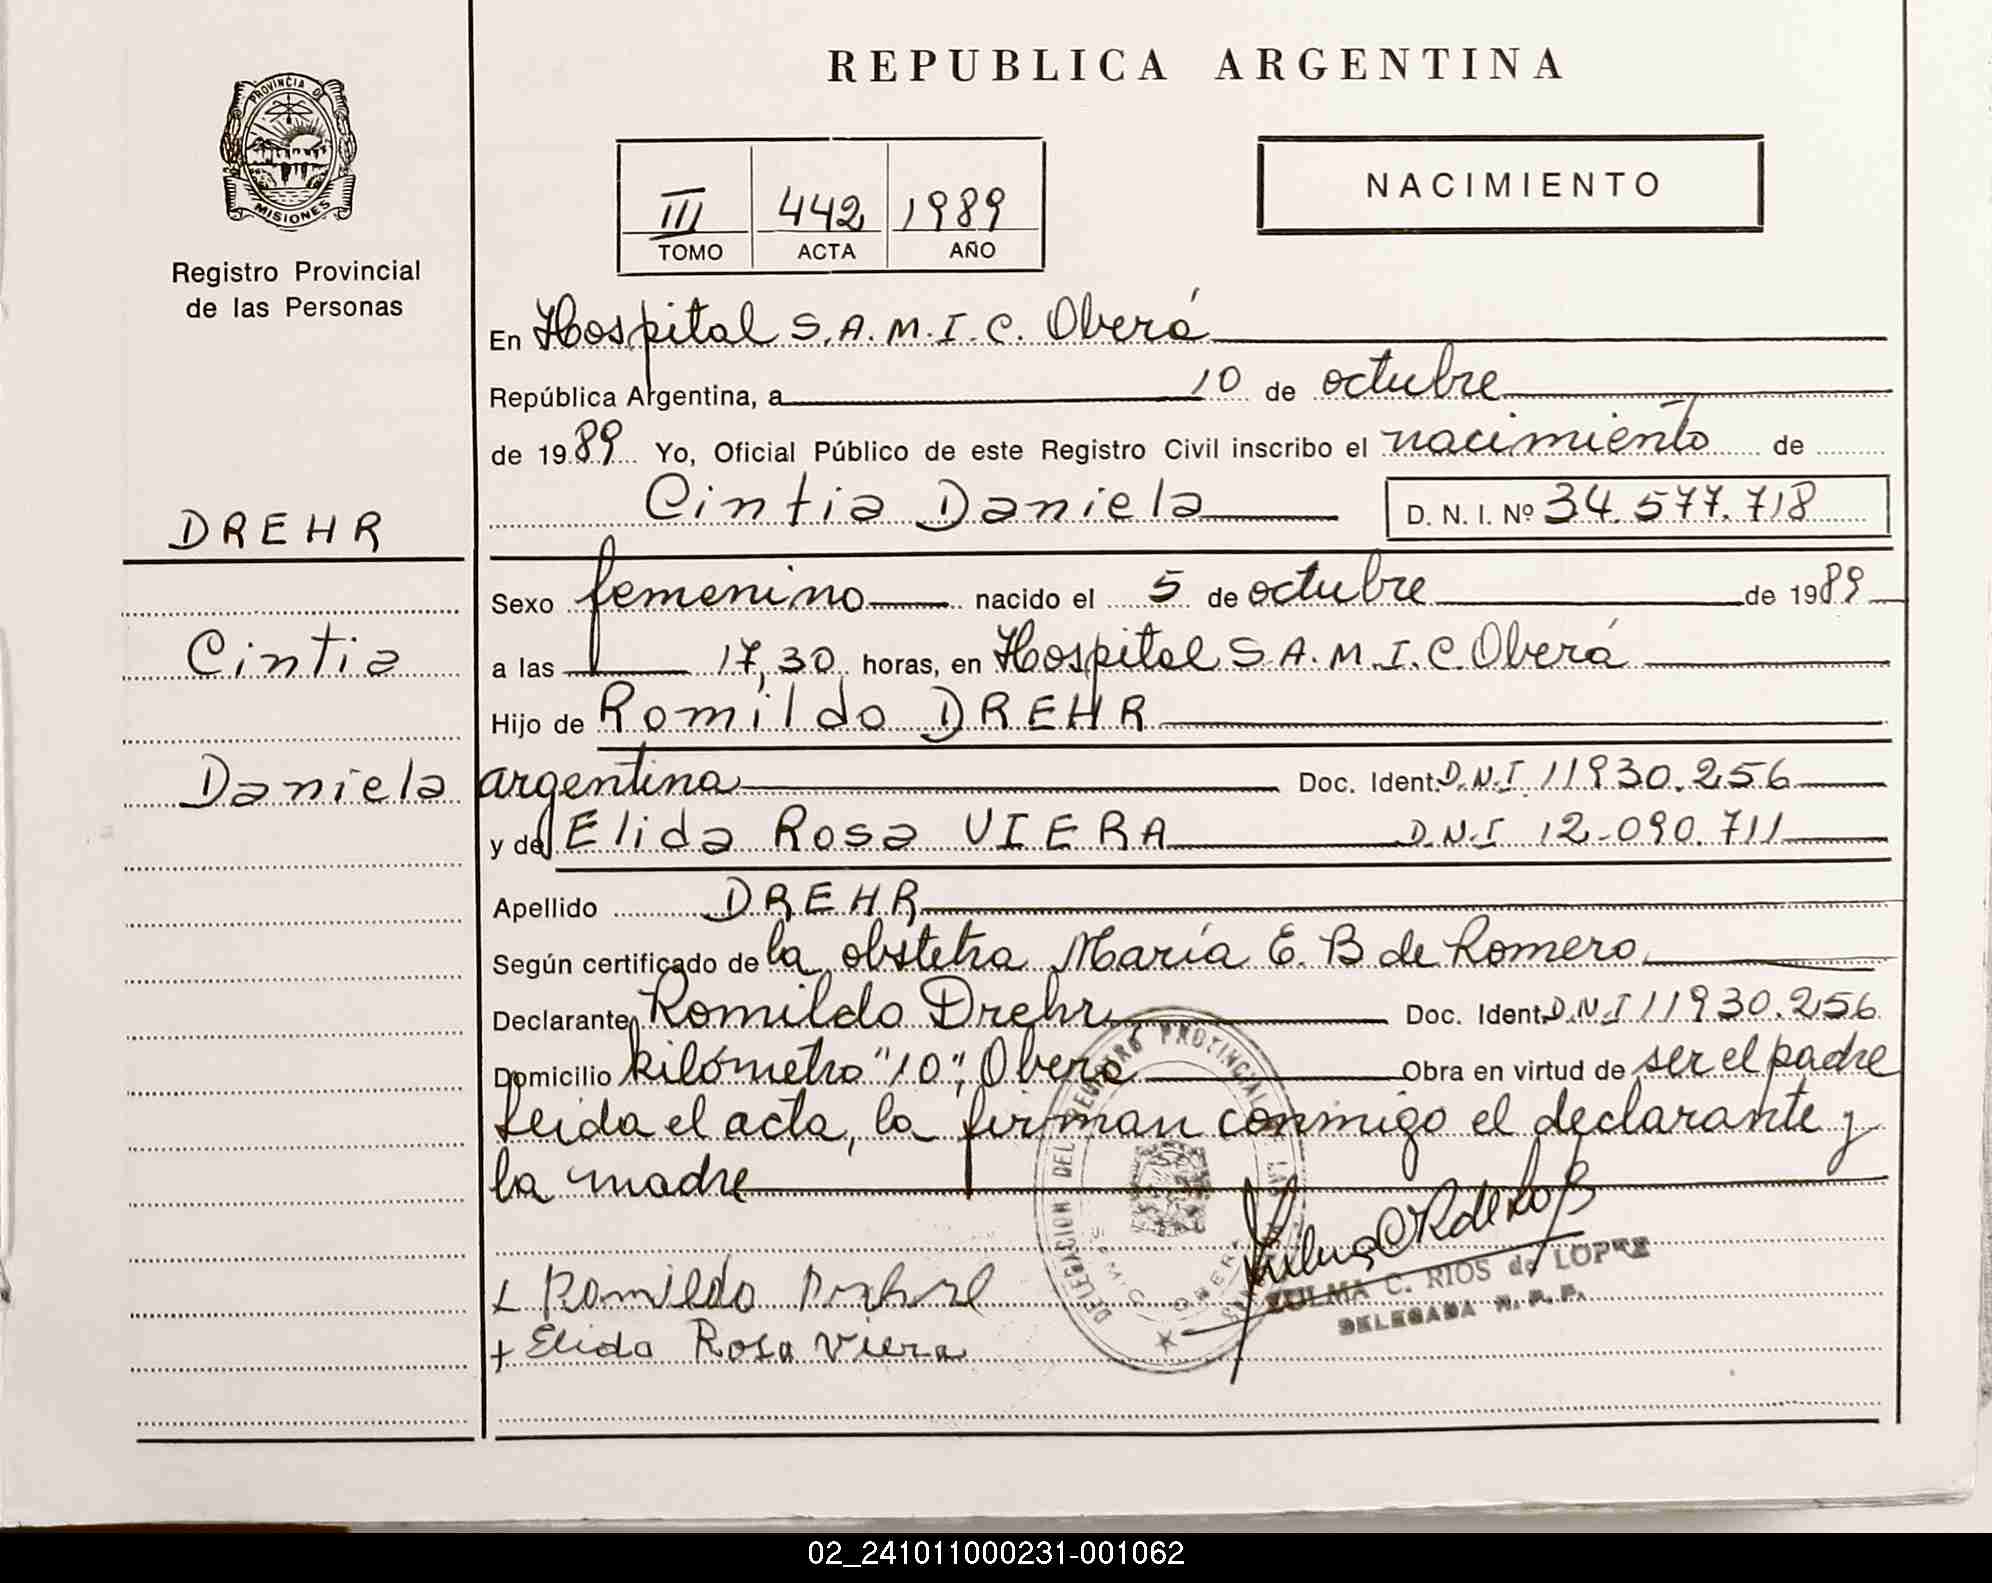 REPUBLICA ARGENTINA
PROVINCIA DE
MISIONES
Registro Provincial
de las Personas
III 442 1989
TOMO ACTA AÑO
NACIMIENTO
DREHR
Cintia
Daniela
En Hospital S.A.M.I.C. Oberá
República Argentina, a 10 de octubre
de 1989 Yo, Oficial Público de este Registro Civil inscribo el nacimiento de
Cintia Daniela D. N. I. Nº 34.577.718
Sexo femenino nacido el 5 de octubre de 1989
a las 17,30 horas, en Hospital S.A.M.I.C. Oberá
Hijo de Romildo DREHR
argentina Doc. Ident. D.N.I. 11930.256
y de Elida Rosa VIERA D.N.I 12-090.711
Apellido DREHR
Según certificado de la obstetra María E. B de Romero
Declarante Romildo Drehr Doc. Ident. D.N.I 11930.256
Domicilio kilómetro "10", Oberá Obra en virtud de ser el padre
Leida el acta, la firman conmigo el declarante y
la madre
DELEGACION DEL REGISTRO PROVINCIAL
Romildo
+ Elida Rosa Viera
ZULMA C. RIOS de LOPEZ
DELEGADA R. P. P.
02_241011000231-001062